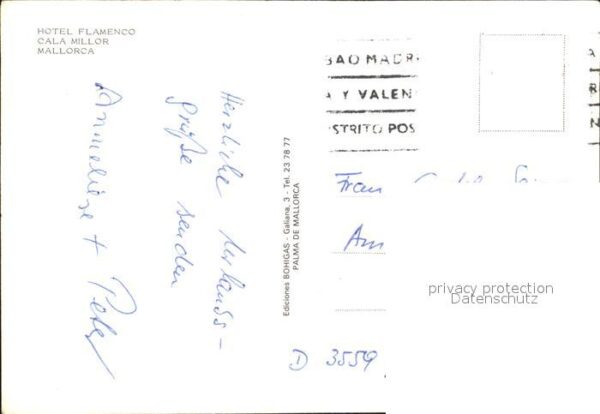 HOTEL FLAMENCO
CALA MILLOR
MALLORCA
Herzliche Urlaubs-
grüße senden
Anneliese + Peter
Ediciones BOHIGAS - Galiana, 3 - Tel. 23 78 77
PALMA DE MALLORCA
BAO MADR
A Y VALEN
STRITO POS
A
R
N
Frau
Am
D 3559
privacy protection
Datenschutz